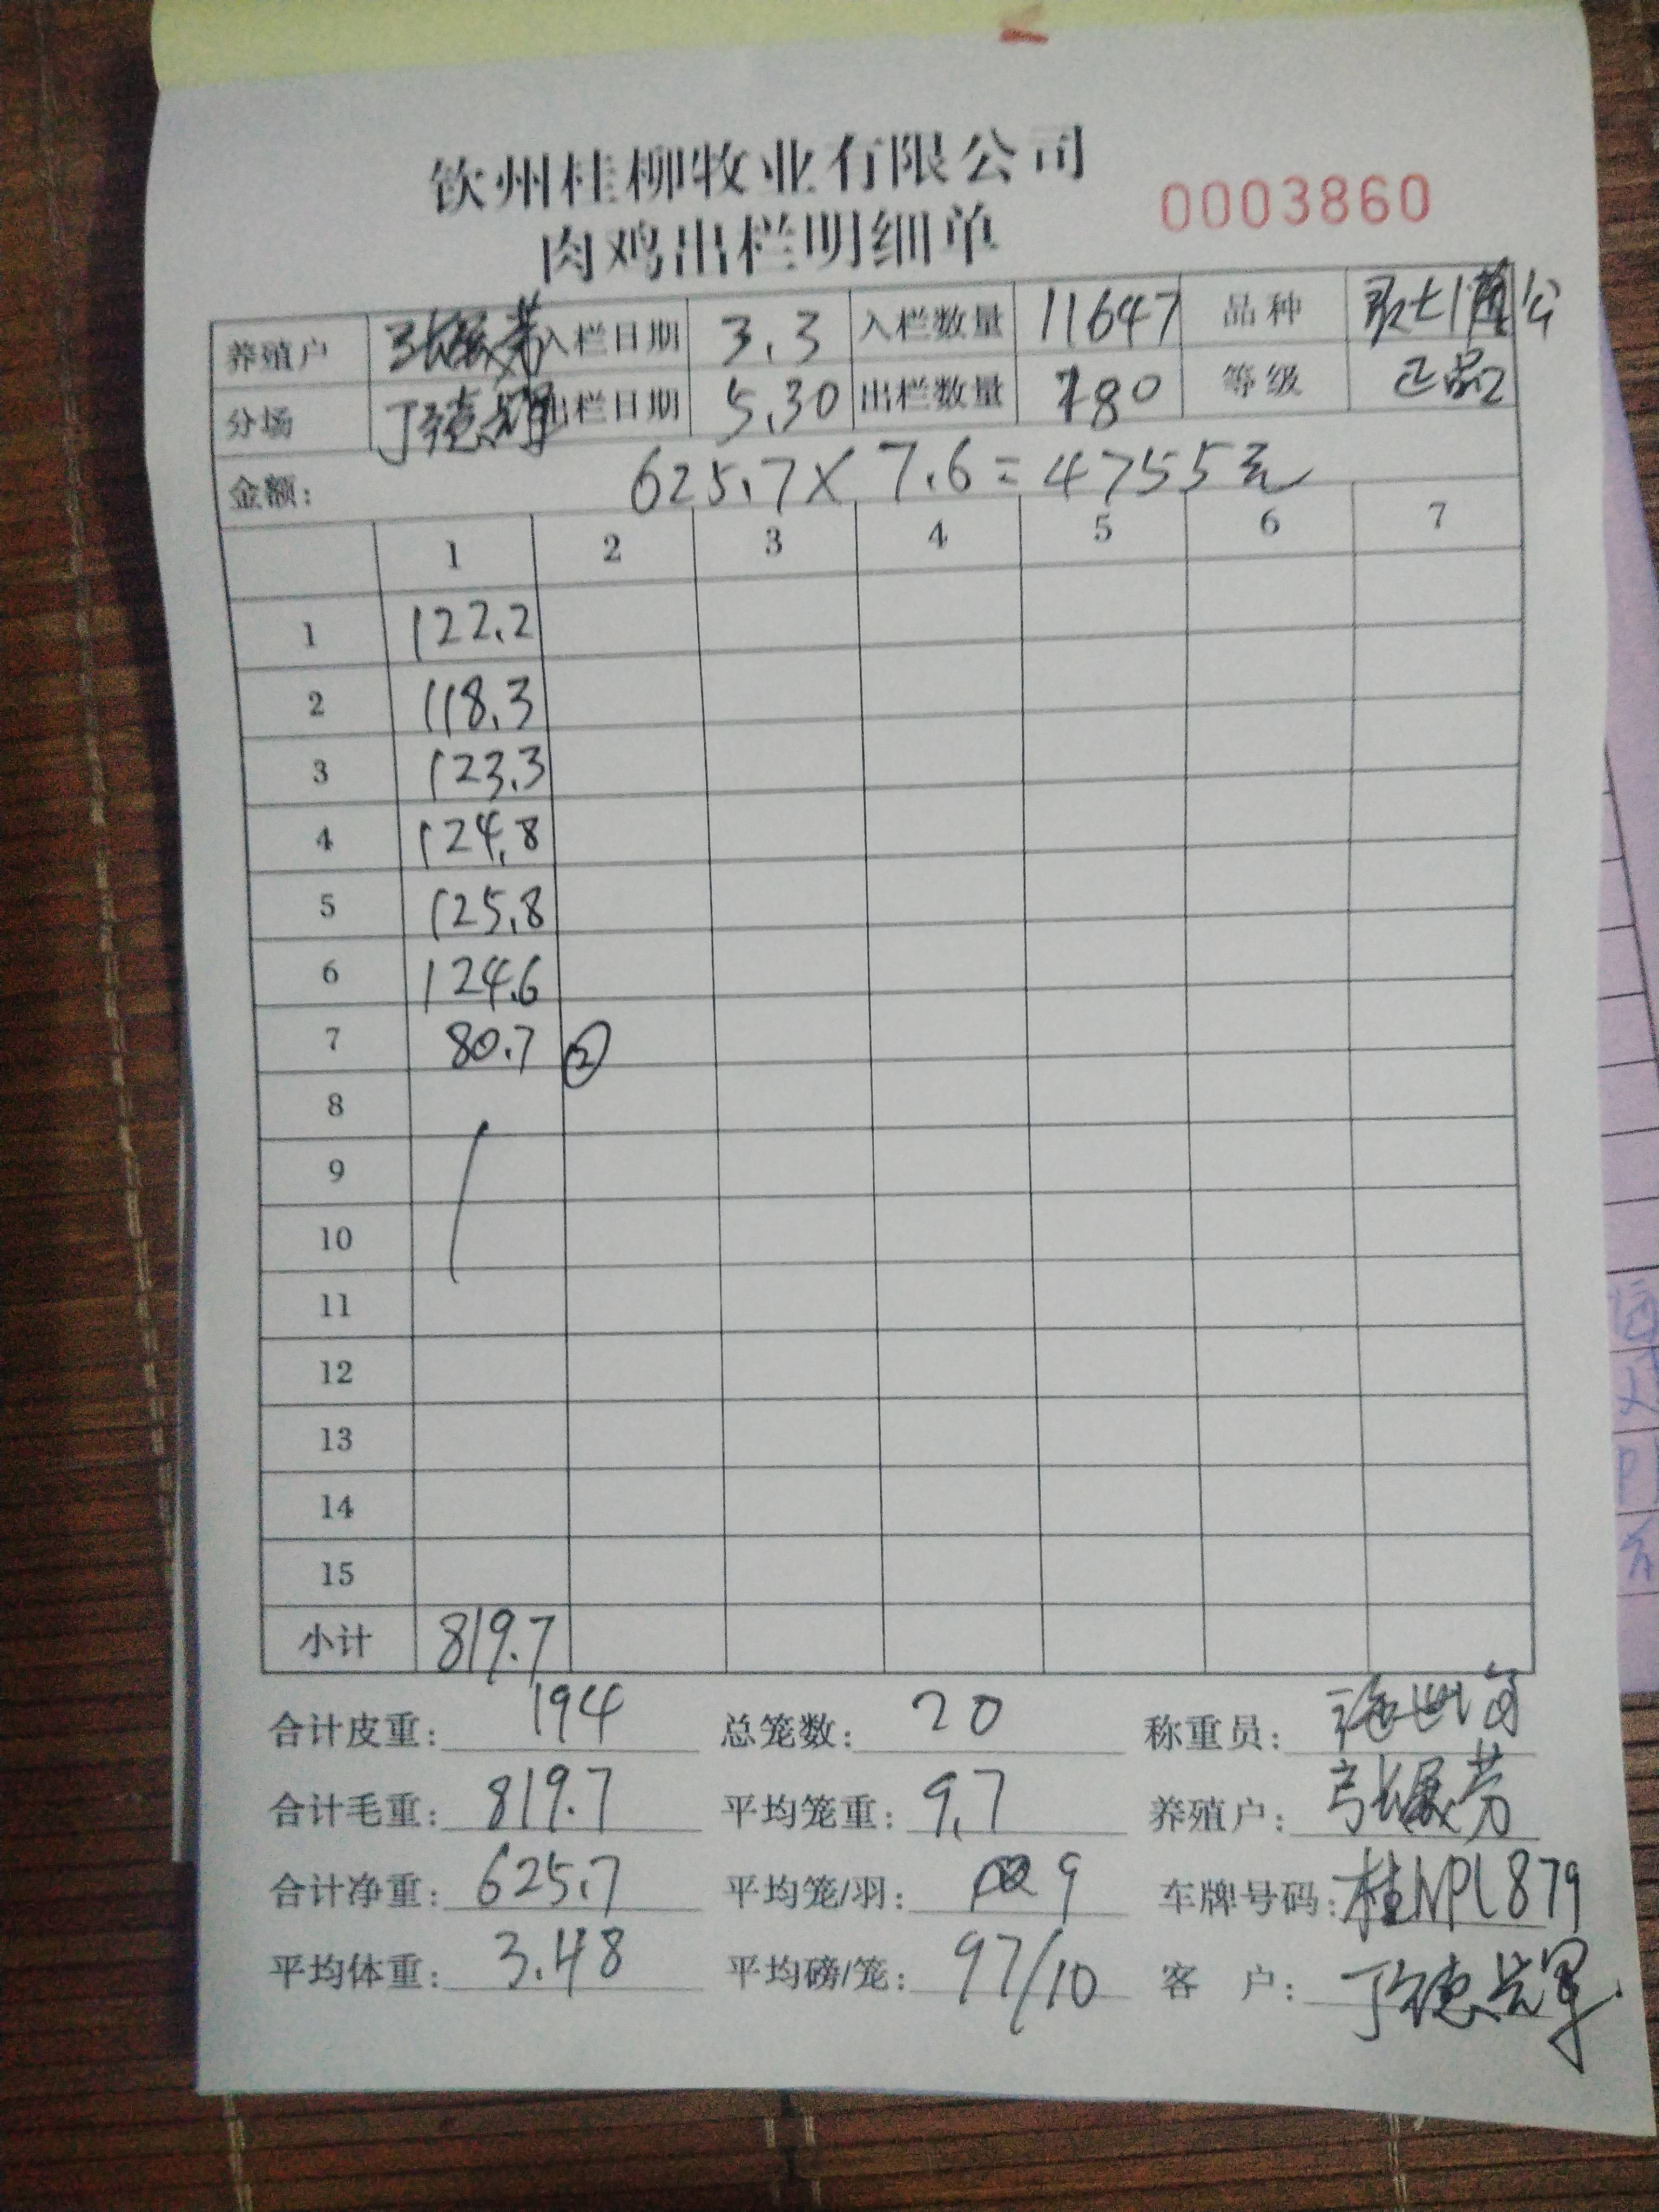 钦州桂柳牧业有限公司
肉鸡出栏明细单
0003860
养殖户 张展芳 入栏日期 3.3 入栏数量 11647 品种
分场 丁德辉 出栏日期 5.30 出栏数量 180 等级 正品
金额: 625.7 X 7.6 = 4755元
1 2 3 4 5 6 7
1 122.2
2 118.3
3 123.3
4 124.8
5 125.8
6 124.6
7 80.7 ②
8
9
10
11
12
13
14
15
小计 819.7
合计皮重: 194 总笼数: 20 称重员:
合计毛重: 819.7 平均笼重: 9.7 养殖户: 张展芳
合计净重: 625.7 平均笼/羽: 9 车牌号码: 桂NPL879
平均体重: 3.48 平均磅/笼: 97/10 客户: 丁德辉